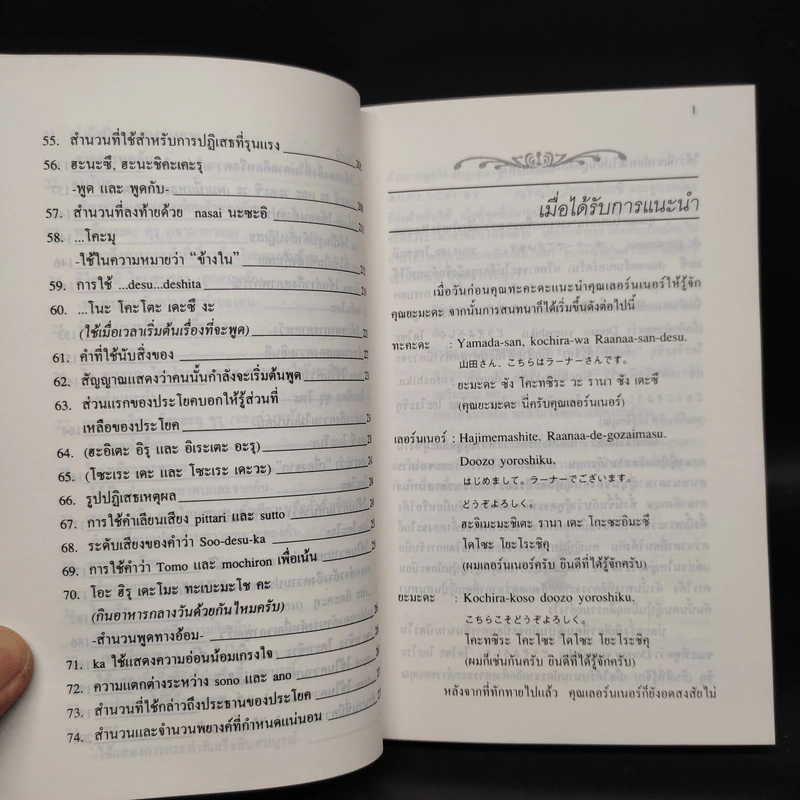 55. สำนวนที่ใช้สำหรับการปฏิเสธที่รุนแรง
56. ฮะนะซึ, ฮะนะชิคะเคะรุ
-พูด และ พูดกับ-
57. สำนวนที่ลงท้ายด้วย nasai นะซะอิ
58. ...โคะมุ
-ใช้ในความหมายว่า “ข้างใน”
59. การใช้ ...desu...deshita
60. ...โนะ โคะโตะ เดะซึ งะ
(ใช้เมื่อเวลาเริ่มต้นเรื่องที่จะพูด)
61. คำที่ใช้นับสิ่งของ
62. สัญญาณแสดงว่าคนนั้นกำลังจะเริ่มต้นพูด
63. ส่วนแรกของประโยคบอกให้รู้ส่วนที่
เหลือของประโยค
64. (ฮะอิเตะ อิรุ และ อิเระเตะ อะรุ)
65. (โซะเระ เดะ และ โซะเระ เดะวะ)
66. รูปปฏิเสธเหตุผล
67. การใช้คำเลียนเสียง pittari และ sutto
68. ระดับเสียงของคำว่า Soo-desu-ka
69. การใช้คำว่า Tomo และ mochiron เพื่อเน้น
70. โอะ ฮิรุ เดะโมะ ทะเบะมะโช คะ
(กินอาหารกลางวันด้วยกันไหมครับ)
-สำนวนพูดทางอ้อม-
71. ka ใช้แสดงความอ่อนน้อมเกรงใจ
72. ความแตกต่างระหว่าง sono และ ano
73. สำนวนที่ใช้กล่าวถึงประธานของประโยค
74. สำนวนและจำนวนพยางค์ที่กำหนดแน่นอน
1
เมื่อได้รับการแนะนำ
เมื่อวันก่อนคุณทะคะดะแนะนำคุณเลอร์นเนอร์ให้รู้จัก
คุณยะมะดะ จากนั้นการสนทนาก็ได้เริ่มขึ้นดังต่อไปนี้
ทะคะดะ : Yamada-san, kochira-wa Raanaa-san-desu.
山田さん、こちらはラーナーさんです。
ยะมะดะ ซัง โคะทชิระ วะ รานา ซัง เดะซึ
(คุณยะมะดะ นี่ครับคุณเลอร์นเนอร์)
เลอร์นเนอร์ : Hajimemashite. Raanaa-de-gozaimasu.
Doozo yoroshiku.
はじめまして。ラーナーでございます。
どうぞよろしく。
ฮะจิเมะมะชิเตะ รานา เดะ โกะซะอิมะซึ
โดโซะ โยะโระชิคุ
(ผมเลอร์นเนอร์ครับ ยินดีที่ได้รู้จักครับ)
ยะมะดะ : Kochira-koso doozo yoroshiku.
こちらこそどうぞよろしく。
โคะทชิระ โคะโซะ โดโซะ โยะโระชิคุ
(ผมก็เช่นกันครับ ยินดีที่ได้รู้จักครับ)
หลังจากที่ทักทายไปแล้ว คุณเลอร์นเนอร์ก็ยังอดสงสัยไม่